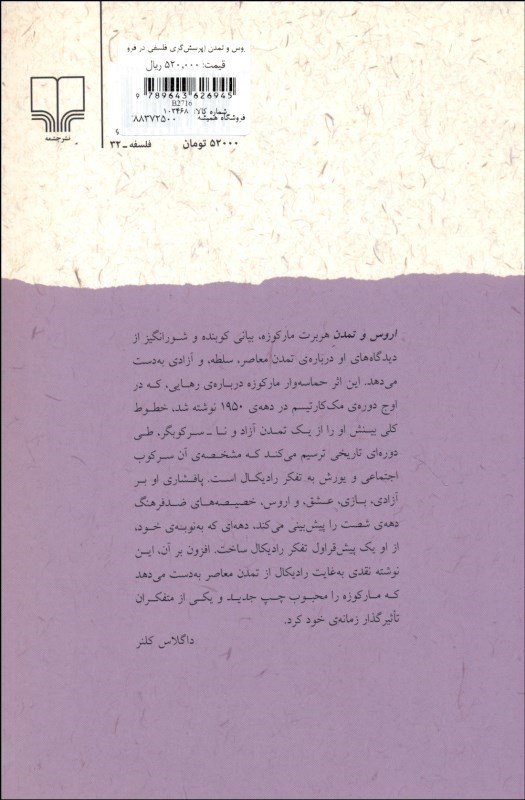 روس و تمدن (پرسش‌گری فلسفی در فرو
قیمت: ۵۲۰,۰۰۰ ریال
9 789643 626945
B2716
شماره کالا: ۱۰۲۴۶۸
فروشگاه همیشه ۸۸۳۷۲۵۰۰
نشرچشمه
فلسفه ـ ۳۲
۵۲۰۰۰ تومان
اروس و تمدن هربرت مارکوزه، بیانی کوبنده و شورانگیز از
دیدگاه‌های او درباره‌ی تمدن معاصر، سلطه، و آزادی به‌دست
می‌دهد. این اثر حماسه‌وار مارکوزه درباره‌ی رهایی، که در
اوج دوره‌ی مک‌کارتیسم در دهه‌ی ۱۹۵۰ نوشته شد، خطوط
کلی بینش او را از یک تمدن آزاد و نا ـ سرکوبگر، طی
دوره‌ای تاریخی ترسیم می‌کند که مشخصه‌ی آن سرکوب
اجتماعی و یورش به تفکر رادیکال است. پافشاری او بر
آزادی، بازی، عشق، و اروس، خصیصه‌های ضدفرهنگ
دهه‌ی شصت را پیش‌بینی می‌کند، دهه‌ای که به‌نوبه‌ی خود،
از او یک پیش‌قراول تفکر رادیکال ساخت. افزون بر آن، این
نوشته نقدی به‌غایت رادیکال از تمدن معاصر به‌دست می‌دهد
که مارکوزه را محبوب چپ جدید و یکی از متفکران
تأثیرگذار زمانه‌ی خود کرد.
داگلاس کلنر